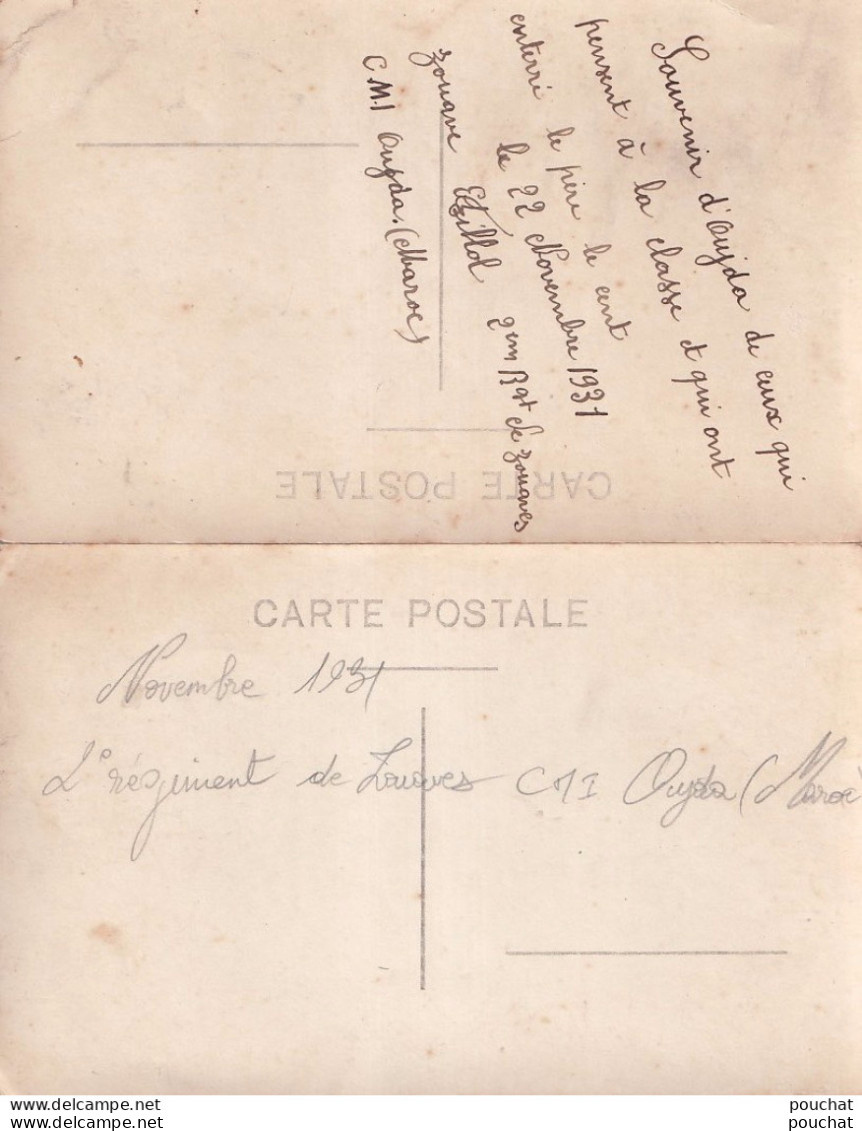 Souvenir d'Oujda de ceux qui
pensent à la classe et qui ont
enterré le père le cent
le 22 Novembre 1931
zouave 2em Rgt de zouaves
C.M.I Oujda. (Maroc)
CARTE POSTALE
CARTE POSTALE
Novembre 1931
2e régiment de Zouaves CMI Oujda (Maroc)
delcampe.net
delcampe.net
pouchat
pouchat